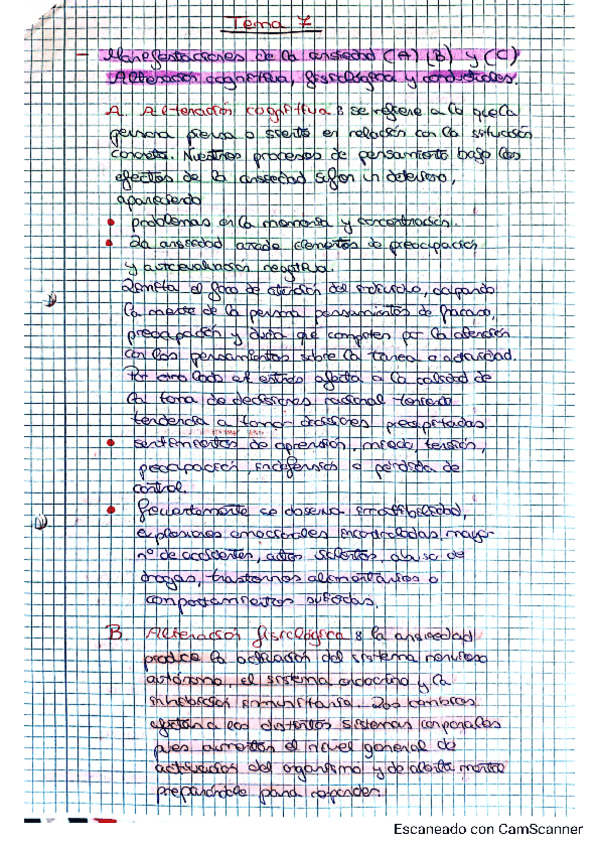 Tema 7
- Manifestaciones de la ansiedad (A) (B) y (C)
Alteración cognitiva, fisiológica y conductuales.
A. Alteración cognitiva : se refiere a lo que la
persona piensa o siente en relación con la situación
concreta. Nuestros procesos de pensamiento bajo los
efectos de la ansiedad sufren un deterioro,
apareciendo
• problemas en la memoria y concentración.
• La ansiedad añade elementos de preocupación
y autoevaluación negativa.
Limita el foco de atención del individuo, ocupando
la mente de la persona pensamientos de fracaso,
preocupación y duda que compiten por la atención
con los pensamientos sobre la tarea o actividad.
Por otro lado el estrés afecta a la calidad de
la toma de decisiones racional teniendo
tendencia a tomar decisiones precipitadas.
• sentimientos de aprensión, miedo, tensión,
preocupación, indefensión o pérdida de
control.
• frecuentemente se observa irritabilidad,
explosiones emocionales incontroladas, mayor
nº de accidentes, actos violentos, abuso de
drogas, trastornos alimentarios o
comportamientos suicidas.
B. Alteración fisiológica : la ansiedad
produce la activación del sistema nervioso
autónomo, el sistema endocrino y la
inhibición inmunitaria. Los cambios
afectan a los distintos sistemas corporales
pues aumentan el nivel general de
activación del organismo y de alerta mental
preparándole para responder.
Escaneado con CamScanner